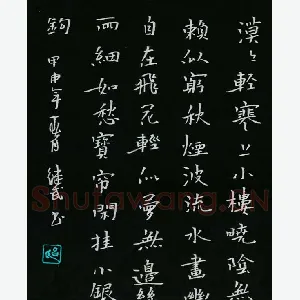 漠〻輕寒上小樓曉陰無
賴似窮秋煙波流水畫幽
自在飛花輕似夢無邊絲
雨細如愁寶帘閑挂小銀
鈎 甲申年
Shufawang.CN